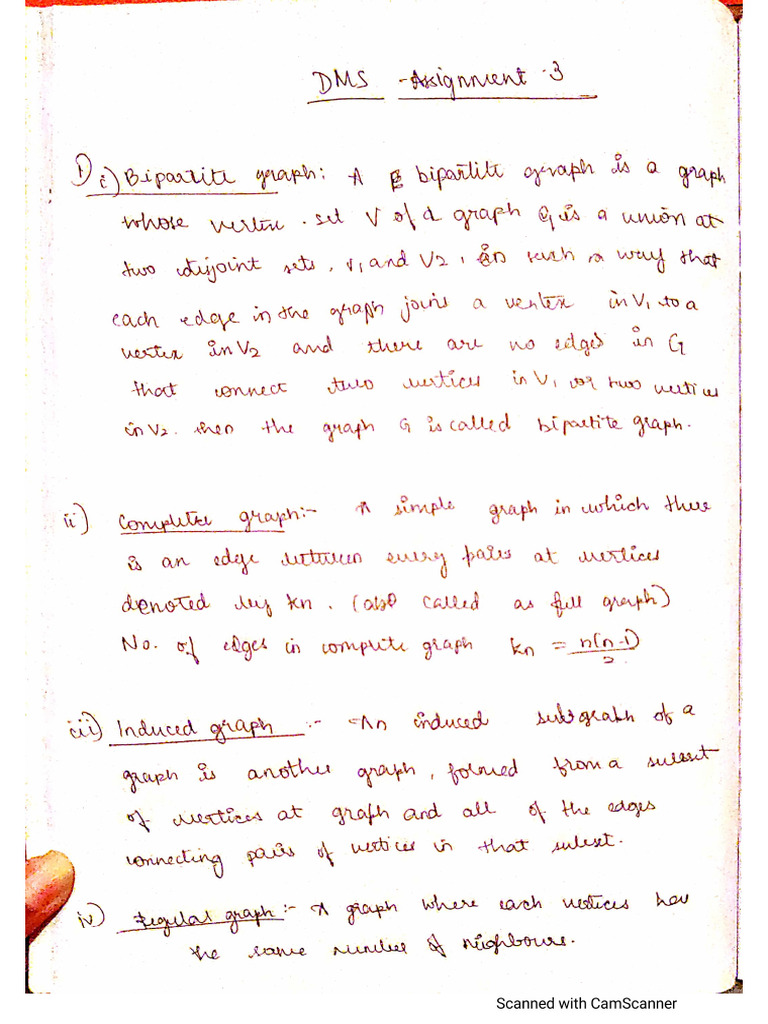 DMS - Assignment - 3
1) i) Bipartite graph: A bipartite graph is a graph
whose vertex set V of a graph G is a union at
two disjoint sets, V1 and V2, in such a way that
each edge in the graph joins a vertex in V1 to a
vertex in V2 and there are no edges in G
that connect two vertices in V1 or two vertices
in V2. then the graph G is called bipartite graph.
ii) Complete graph:- A simple graph in which there
is an edge between every pairs at vertices
denoted by kn. (also called as full graph)
No. of edges in complete graph kn = n(n-1)/2
iii) Induced graph :- An induced subgraph of a
graph is another graph, formed from a subset
of vertices at graph and all of the edges
connecting pairs of vertices in that subset.
iv) Regular graph:- A graph where each vertices have
the same number of neighbours.
Scanned with CamScanner